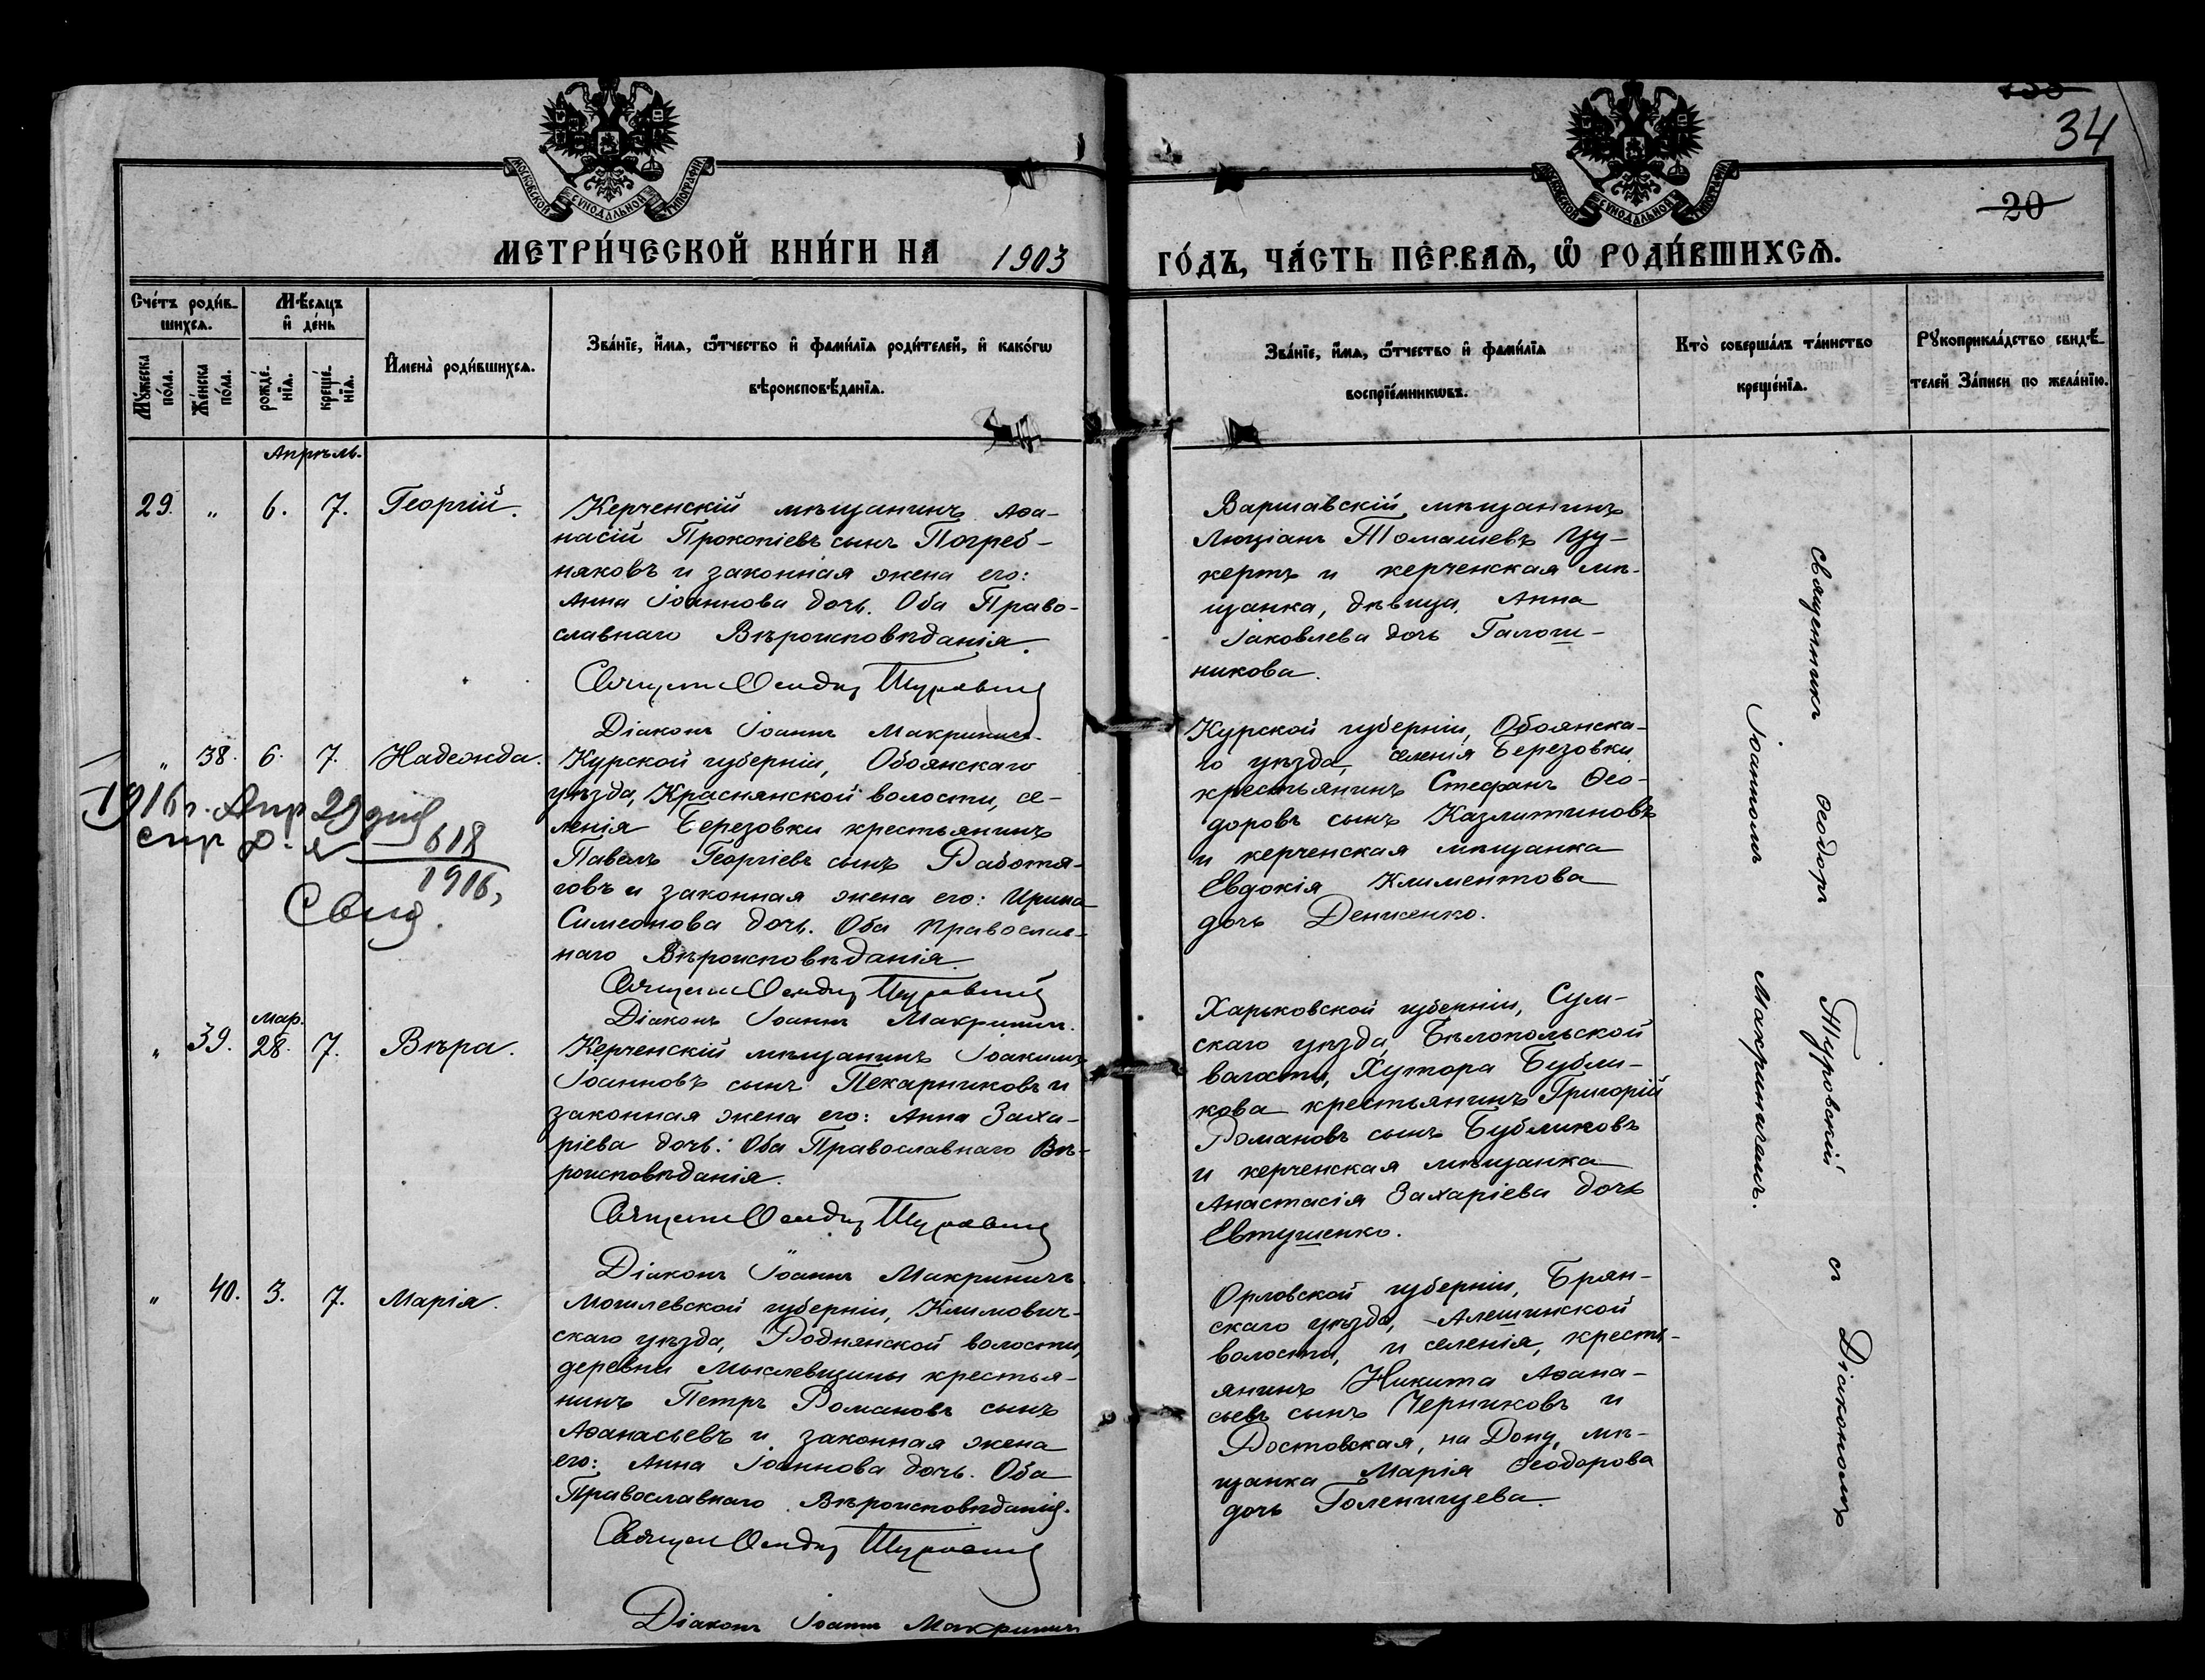 34
20
МОСКОВСКОЙ СѴНОДАЛЬНОЙ ТИПОГРАФІИ
МОСКОВСКОЙ СѴНОДАЛЬНОЙ ТИПОГРАФІИ
МЕТРИ́ЧЕСКОЙ КНИ́ГИ НА 1903
ГО́ДЪ, ЧА́СТЬ ПЕ́РВАѦ, Ѿ РОДИ́ВШИХСѦ.
Сче́тъ роди́в-
шихсѧ.
Мꙋ́жеска по́ла.
Же́нска по́ла.
Мѣ́сѧцъ
и҆ де́нь
рожде́-
нїѧ.
креще́-
нїѧ.
И҆мена̀ роди́вшихсѧ.
Зва́нїе, и҆́мѧ, ѻ҆́тчество и҆ фами́лїѧ роди́телей, и҆ како́гѡ
вѣроисповѣ́данїѧ.
Зва́нїе, и҆́мѧ, ѻ҆́тчество и҆ фами́лїѧ
воспрїе́мникѡвъ.
Кто̀ соверша́лъ та́инство
креще́нїѧ.
Рꙋкоприкла́дство свидѣ́-
телей За́писи по жела́нїю.
Апрѣль.
29. " 6. 7. Георгій.
Керченскій мѣщанинъ Аѳа-
насій Прокопіевъ сынъ Погреб-
няковъ и законная жена его:
Анна Іоаннова дочь. Оба Право-
славнаго Вѣроисповѣданія.
Священ Ѳеодор Туровский
Діаконъ Іоаннъ Макринич
Варшавскій мѣщанинъ
Люціанъ Томашевъ Цу-
кертъ и керченская мѣ-
щанка, дѣвица, Анна
Іаковлева дочь Галош-
никова.
" 38. 6. 7. Надежда.
1916 г. Апр 29 дня
618
1916,
Свид.
Курской губерніи, Обоянскаго
уѣзда, Краснянской волости, се-
ленія Березовки крестьянинъ
Павелъ Георгіевъ сынъ Работя-
говъ и законная жена его: Ирина
Симеонова дочь. Оба Православ-
наго Вѣроисповѣданія.
Священ Ѳеодор Туровский
Діаконъ Іоаннъ Макринич.
Курской губерніи, Обоянска-
го уѣзда, селенія Березовки
крестьянинъ Стефанъ Ѳео-
доровъ сынъ Казлитиновъ
и керченская мѣщанка
Евдокія Климентова
дочь Денисенко.
" 39. Мар. 28. 7. Вѣра.
Керченскій мѣщанинъ Іоакимъ
Іоанновъ сынъ Пекарниковъ и
законная жена его: Анна Заха-
ріева дочь. Оба Православнаго Вѣ-
роисповѣданія.
Священ Ѳеодор Туровский
Діаконъ Іоаннъ Макриничъ
Харьковской губерніи, Сум-
скаго уѣзда, Бѣлопольской
волости, Хутора Бубли-
кова крестьянинъ Григорій
Романовъ сынъ Бубликовъ
и керченская мѣщанка
Анастасія Захаріева дочь
Евтушенко.
" 40. 3. 7. Марія.
Могилевской губерніи, Климович-
скаго уѣзда, Роднянской волости,
деревни Мыслевщины крестья-
нинъ Петръ Романовъ сынъ
Аѳанасьевъ и законная жена
его: Анна Іоаннова дочь. Оба
Православнаго Вѣроисповѣданія.
Священ Ѳеодор Туровский
Діаконъ Іоаннъ Макриничъ
Орловской губерніи, Брян-
скаго уѣзда, Алешинской
волости, и селенія, кресть-
янинъ Никита Аѳана-
сьевъ сынъ Черниковъ и
Ростовская, на Дону, мѣ-
щанка Марія Ѳеодорова
дочь Голенищева.
Священникъ Ѳеодоръ Туровскій съ Діакономъ
Іоанномъ Макриничемъ.